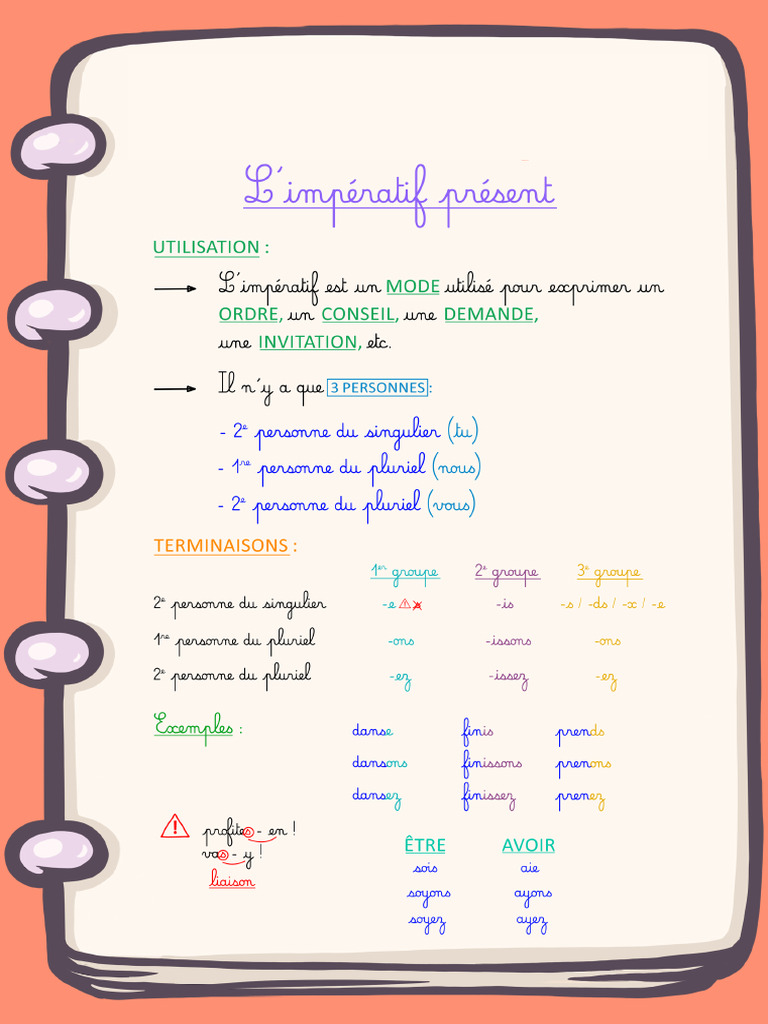 L'impératif présent
UTILISATION :
→ L'impératif est un MODE utilisé pour exprimer un
ORDRE, un CONSEIL, une DEMANDE,
une INVITATION, etc.
→ Il n'y a que 3 PERSONNES:
- 2e personne du singulier (tu)
- 1re personne du pluriel (nous)
- 2e personne du pluriel (vous)
TERMINAISONS :
1er groupe 2e groupe 3e groupe
2e personne du singulier -e ⚠ s -is -s / -ds / -x / -e
1re personne du pluriel -ons -issons -ons
2e personne du pluriel -ez -issez -ez
Exemples : danse finis prends
dansons finissons prenons
dansez finissez prenez
⚠ profites - en !
vas - y !
liaison
ÊTRE AVOIR
sois aie
soyons ayons
soyez ayez